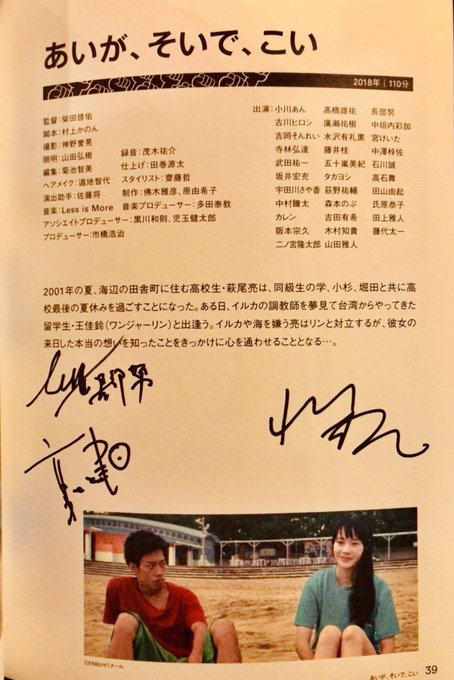 あいが、そいで、こい
2018年｜110分
監督：柴田啓佑
脚本：村上かのん
撮影：神野誉晃
照明：山田弘樹　録音：茂木祐介
編集：菊池智美　仕上げ：田巻源太
ヘアメイク：道地智代　スタイリスト：齋藤哲
演出助手：佐藤将　制作：佛木雅彦、原由希子
音楽：Less is More　音楽プロデューサー：多田泰教
アソシエイトプロデューサー：黒川和則、児玉健太郎
プロデューサー：市橋浩治
出演：小川あん　髙橋雄祐　長部努
古川ヒロシ　廣瀬祐樹　中垣内彩加
吉岡そんれい　水沢有礼　宮けいた
寺林弘達　藤井桂　中澤梓佐
武田祐一　五十嵐美紀　石川誠
坂井宏充　タカヨシ　高石舞
宇田川さや香　荻野祐輔　田山由起
中村鐘太　森本のぶ　氏原恭子
カレン　吉田有希　田上雅人
阪本宗久　木村知貴　藤代太一
二ノ宮隆太郎　山田雅人
2001年の夏、海辺の田舎町に住む高校生・萩尾亮は、同級生の学、小杉、堀田と共に高
校最後の夏休みを過ごすことになった。ある日、イルカの調教師を夢見て台湾からやってきた
留学生・王佳鈴（ワンジャーリン）と出逢う。イルカや海を嫌う亮はリンと対立するが、彼女の
来日した本当の想いを知ったことをきっかけに心を通わせることとなる…。
©ENBUゼミナール
あいが、そいで、こい　39